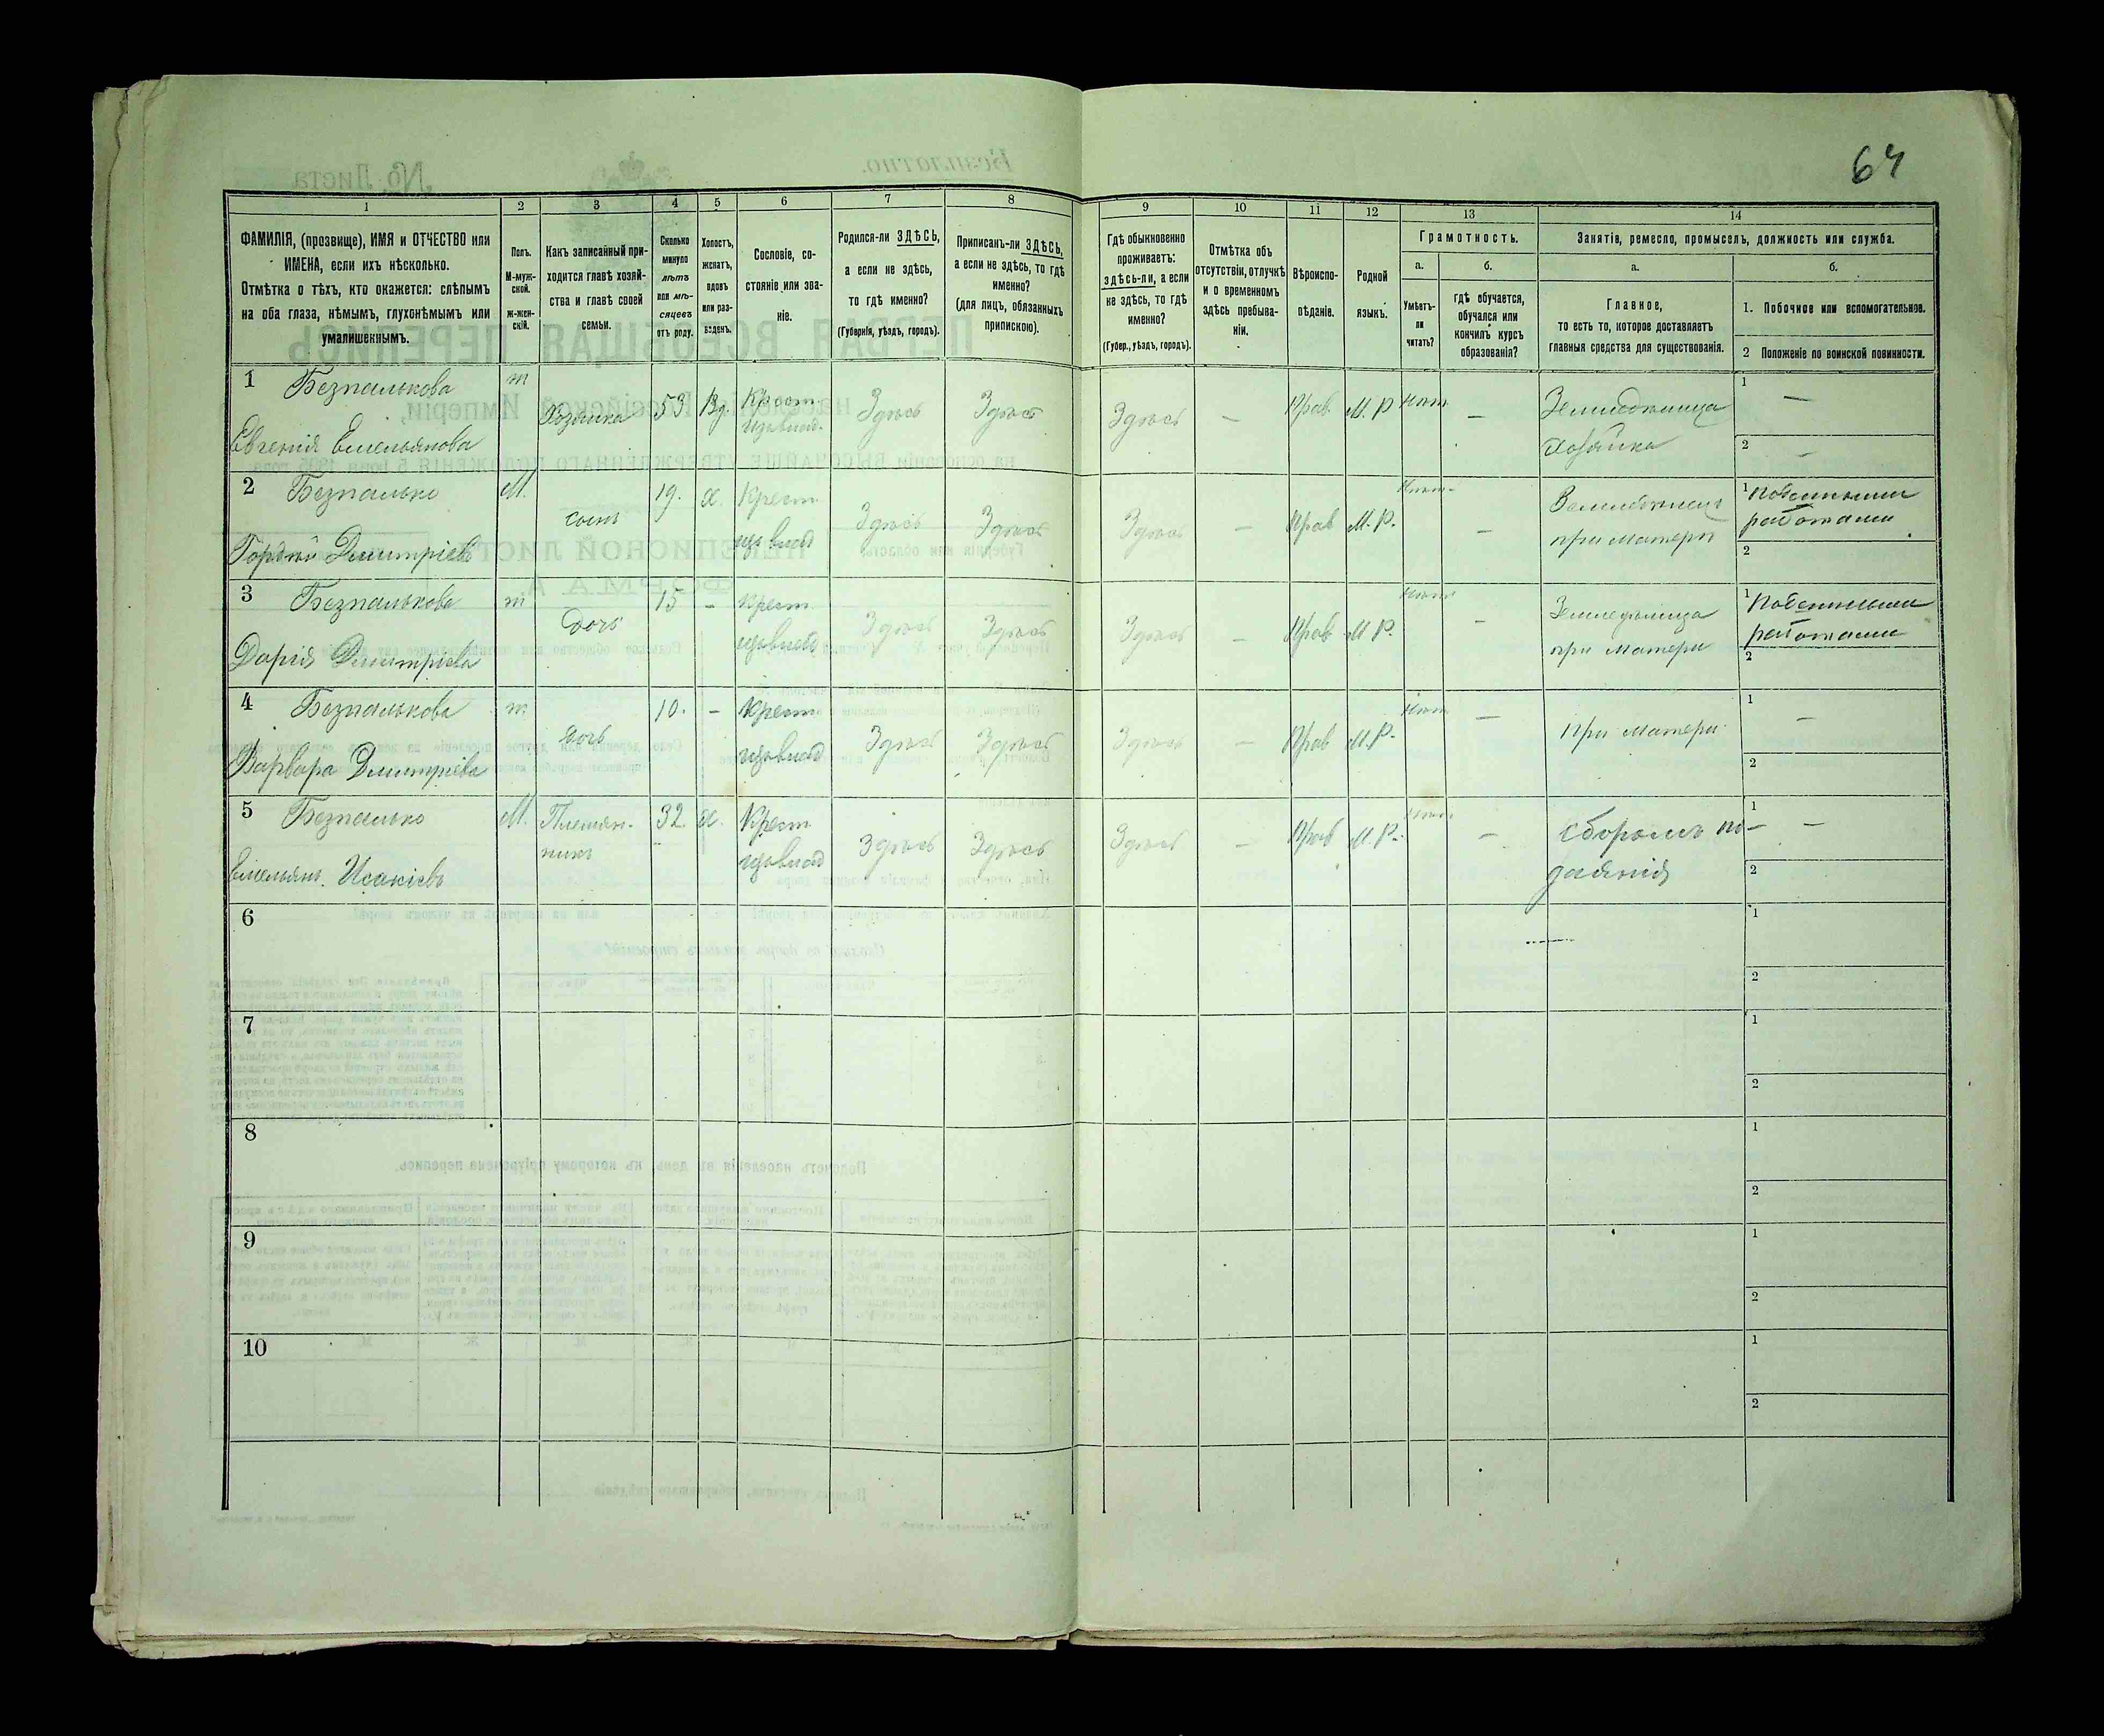 64
1 2 3 4 5 6 7 8 9 10 11 12 13 14
ФАМИЛІЯ, (прозвище), ИМЯ и ОТЧЕСТВО или
ИМЕНА, если ихъ нѣсколько.
Отмѣтка о тѣхъ, кто окажется: слѣпымъ
на оба глаза, нѣмымъ, глухонѣмымъ или
умалишеннымъ.
Полъ.
М-муж-
ской.
ж-жен-
скій.
Какъ записанный при-
ходится главѣ хозяй-
ства и главѣ своей
семьи.
Сколько
минуло
лѣтъ
или мѣ-
сяцевъ
отъ роду.
Холостъ,
женатъ,
вдовъ
или раз-
веденъ.
Сословіе, со-
стояніе или зва-
ніе.
Родился-ли ЗДѢСЬ,
а если не здѣсь,
то гдѣ именно?
(Губернія, уѣздъ, городъ).
Приписанъ-ли ЗДѢСЬ,
а если не здѣсь, то гдѣ
именно?
(для лицъ, обязанныхъ
припискою).
Гдѣ обыкновенно
проживаетъ:
здѣсь-ли, а если
не здѣсь, то гдѣ
именно?
(Губер., уѣздъ, городъ).
Отмѣтка объ
отсутствіи, отлучкѣ
и о временномъ
здѣсь пребыва-
ніи.
Вѣроиспо-
вѣданіе.
Родной
языкъ.
Грамотность.
а. б.
Умѣетъ-
ли
читать?
гдѣ обучается,
обучался или
кончилъ курсъ
образованія?
Занятіе, ремесло, промыселъ, должность или служба.
а. б.
Главное,
то есть то, которое доставляетъ
главныя средства для существованія.
1. Побочное или вспомогательное.
2 Положеніе по воинской повинности.
1 Безпалькова ж Хозяйка 53 Вд. Крест. Здѣсь Здѣсь Здѣсь — Прав. М. Р нѣт — Земледѣлица 1 —
Евгенія Емельянова изъ влад. хозяйка 2 —
2 Безпалько М. сынъ 19. х. Крест Здѣсь Здѣсь Здѣсь — Прав М. Р. нѣт — Земледѣлецъ 1 работами
Гордѣй Дмитріевъ изъ влад при матери 2
3 Безпалькова ж дочь 15 - Крест Здѣсь Здѣсь Здѣсь — Прав М Р. нѣт — Земледѣлица 1 работами
Дарія Дмитріева изъ влад при матери 2
4 Безпалькова ж дочь 10. — Крест Здѣсь Здѣсь Здѣсь — Прав М.Р. нѣт — при матери 1 —
Варвара Дмитріева изъ влад 2
5 Безпалько М. Племян- 32. х. Крест Здѣсь Здѣсь Здѣсь — Прав М. Р. нѣт — сборомъ по- 1 —
Емельянъ Исакіевъ никъ изъ влад даянія 2
6 1
2
7 1
2
8 1
2
9 1
2
10 1
2